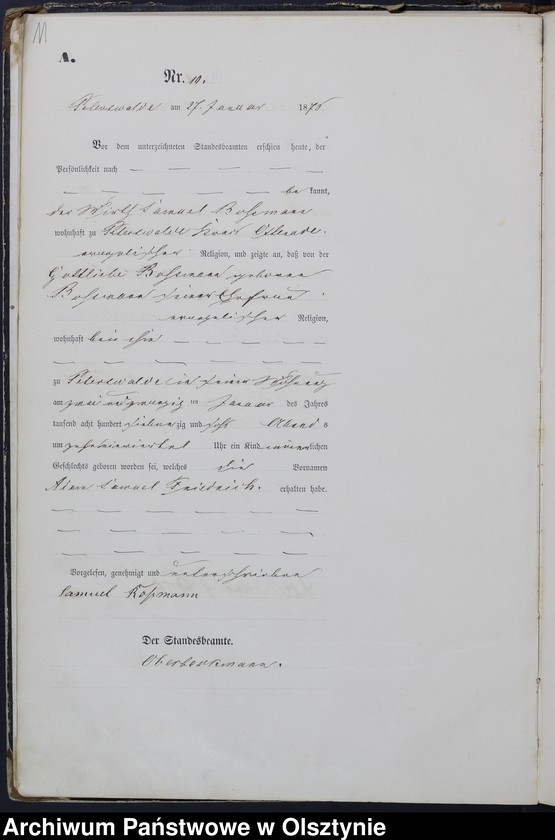 11
A.
Nr. 10.
Peterswalde am 27. Januar 1876
Vor dem unterzeichneten Standesbeamten erschien heute, der
Persönlichkeit nach
be kannt,
der Wirth Samuel
wohnhaft zu Peterswalde Kreis Osterode
evangelischer Religion, und zeigte an, daß von der
Gottliebe geborene
seiner Ehefrau
evangelischer Religion,
wohnhaft bei ihm
zu Peterswalde in seiner Wohnung
am zwei und zwanzig ten Januar des Jahres
tausend acht hundert siebenzig und sechs Abends
um Uhr ein Kind männlichen
Geschlechts geboren worden sei, welches die Vornamen
Samuel Friedrich. erhalten habe.
Vorgelesen, genehmigt und unterschrieben
Samuel
Der Standesbeamte.
Archiwum Państwowe w Olsztynie